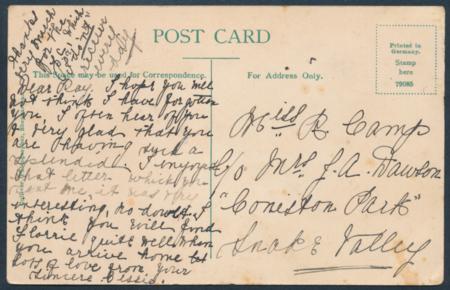 POST CARD
Printed in
Germany.
Stamp
here
79085
This Space may be used for Correspondence.
For Address Only.
Thanks
very much
for the
P.C. which
came
ever
day
Dear Ray, I hope you will
not think I have forgotten
you. I often hear of you
& very glad that you
are having such a
splendid. I enjoyed
that letter which you
sent me, it was very
interesting, no doubt I
think you will find
Florrie quite well when
you arrive home
lots of love from your
sincere Tessie.
Miss R Camp
c/o Mrs J. A. Dawson
"Coniston Park"
Snake Valley